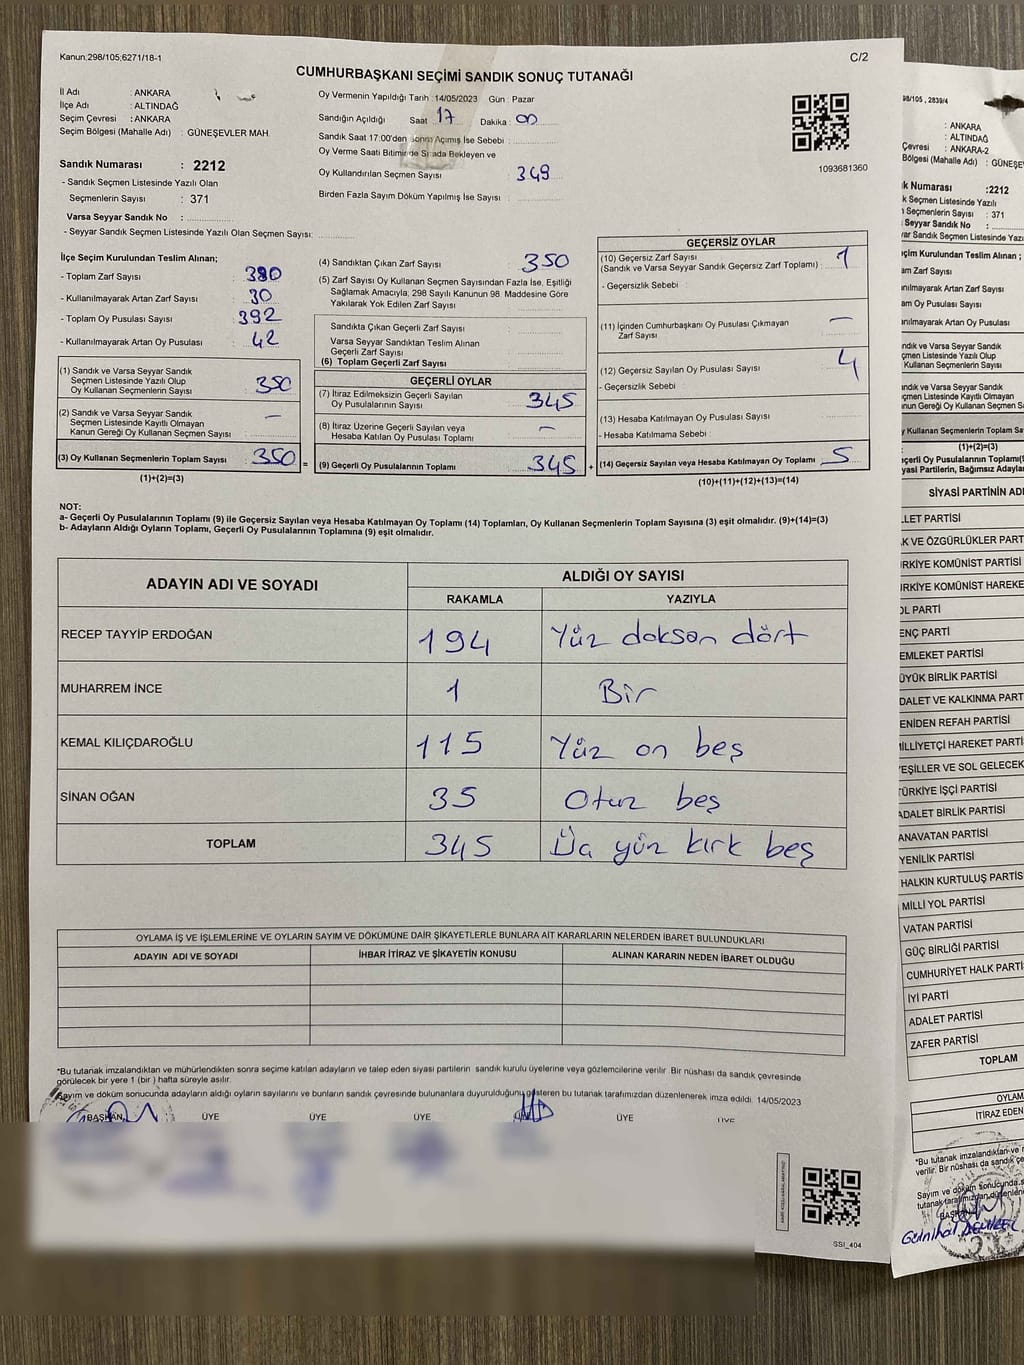 Kanun:298/105;6271/18-1
C/2
CUMHURBAŞKANI SEÇİMİ SANDIK SONUÇ TUTANAĞI
İl Adı : ANKARA
İlçe Adı : ALTINDAĞ
Seçim Çevresi : ANKARA
Seçim Bölgesi (Mahalle Adı) : GÜNEŞEVLER MAH.
Sandık Numarası : 2212
- Sandık Seçmen Listesinde Yazılı Olan
Seçmenlerin Sayısı : 371
Varsa Seyyar Sandık No :
- Seyyar Sandık Seçmen Listesinde Yazılı Olan Seçmen Sayısı:
Oy Vermenin Yapıldığı Tarih : 14/05/2023 Gün : Pazar
Sandığın Açıldığı Saat 17 Dakika : 00
Sandık Saat 17:00'den Sonra Açımış İse Sebebi :
Oy Verme Saati Bitiminde Sırada Bekleyen ve
Oy Kullandırılan Seçmen Sayısı 349
Birden Fazla Sayım Döküm Yapılmış İse Sayısı :
1093681360
İlçe Seçim Kurulundan Teslim Alınan;
- Toplam Zarf Sayısı : 380
- Kullanılmayarak Artan Zarf Sayısı : 30
- Toplam Oy Pusulası Sayısı : 392
- Kullanılmayarak Artan Oy Pusulası : 42
(1) Sandık ve Varsa Seyyar Sandık
Seçmen Listesinde Yazılı Olup
Oy Kullanan Seçmenlerin Sayısı : 350
(2) Sandık ve Varsa Seyyar Sandık
Seçmen Listesinde Kayıtlı Olmayan
Kanun Gereği Oy Kullanan Seçmen Sayısı : –
(3) Oy Kullanan Seçmenlerin Toplam Sayısı : 350 =
(1)+(2)=(3)
(4) Sandıktan Çıkan Zarf Sayısı : 350
(5) Zarf Sayısı Oy Kullanan Seçmen Sayısından Fazla İse, Eşitliği
Sağlamak Amacıyla, 298 Sayılı Kanunun 98. Maddesine Göre
Yakılarak Yok Edilen Zarf Sayısı :
Sandıkta Çıkan Geçerli Zarf Sayısı :
Varsa Seyyar Sandıktan Teslim Alınan
Geçerli Zarf Sayısı :
(6) Toplam Geçerli Zarf Sayısı :
GEÇERLİ OYLAR
(7) İtiraz Edilmeksizin Geçerli Sayılan
Oy Pusulalarının Sayısı : 345
(8) İtiraz Üzerine Geçerli Sayılan veya
Hesaba Katılan Oy Pusulası Toplamı : –
(9) Geçerli Oy Pusulalarının Toplamı : 345 +
GEÇERSİZ OYLAR
(10) Geçersiz Zarf Sayısı
(Sandık ve Varsa Seyyar Sandık Geçersiz Zarf Toplamı) : 1
- Geçersizlik Sebebi :
(11) İçinden Cumhurbaşkanı Oy Pusulası Çıkmayan
Zarf Sayısı : –
(12) Geçersiz Sayılan Oy Pusulası Sayısı : 4
- Geçersizlik Sebebi :
(13) Hesaba Katılmayan Oy Pusulası Sayısı :
- Hesaba Katılmama Sebebi :
(14) Geçersiz Sayılan veya Hesaba Katılmayan Oy Toplamı : 5
(10)+(11)+(12)+(13)=(14)
NOT:
a- Geçerli Oy Pusulalarının Toplamı (9) ile Geçersiz Sayılan veya Hesaba Katılmayan Oy Toplamı (14) Toplamları, Oy Kullanan Seçmenlerin Toplam Sayısına (3) eşit olmalıdır. (9)+(14)=(3)
b- Adayların Aldığı Oyların Toplamı, Geçerli Oy Pusulalarının Toplamına (9) eşit olmalıdır.
ADAYIN ADI VE SOYADI ALDIĞI OY SAYISI
RAKAMLA YAZIYLA
RECEP TAYYİP ERDOĞAN 194 Yüz doksan dört
MUHARREM İNCE 1 Bir
KEMAL KILIÇDAROĞLU 115 Yüz on beş
SİNAN OĞAN 35 Otuz beş
TOPLAM 345 Üç yüz kırk beş
OYLAMA İŞ VE İŞLEMLERİNE VE OYLARIN SAYIM VE DÖKÜMÜNE DAİR ŞİKAYETLERLE BUNLARA AİT KARARLARIN NELERDEN İBARET BULUNDUKLARI
ADAYIN ADI VE SOYADI İHBAR İTİRAZ VE ŞİKAYETİN KONUSU ALINAN KARARIN NEDEN İBARET OLDUĞU
*Bu tutanak imzalandıktan ve mühürlendikten sonra seçime katılan adayların ve talep eden siyasi partilerin sandık kurulu üyelerine veya gözlemcilerine verilir. Bir nüshası da sandık çevresinde
görülecek bir yere 1 (bir) hafta süreyle asılır.
Sayım ve döküm sonucunda adayların aldığı oyların sayılarını ve bunların sandık çevresinde bulunanlara duyurulduğunu gösteren bu tutanak tarafımızdan düzenlenerek imza edildi. 14/05/2023
BAŞKAN ÜYE ÜYE ÜYE ÜYE ÜYE
SSI_404
98/105 , 2839/4
: ANKARA
: ALTINDAĞ
Çevresi : ANKARA-2
Bölgesi (Mahalle Adı) : GÜNEŞEV
ık Numarası :2212
k Seçmen Listesinde Yazılı
ı Seçmenlerin Sayısı : 371
Seyyar Sandık No :
yar Sandık Seçmen Listesinde Yazı
çim Kurulundan Teslim Alınan ;
am Zarf Sayısı
nılmayarak Artan Zarf Sayısı
am Oy Pusulası Sayısı
anılmayarak Artan Oy Pusulası
ndık ve Varsa Seyyar Sandık
çmen Listesinde Yazılı Olup
Kullanan Seçmenlerin Sayısı
ındık ve Varsa Seyyar Sandık
çmen Listesinde Kayıtlı Olmayan
nun Gereği Oy Kullanan Seçmen S
y Kullanan Seçmenlerin Toplam Sa
(1)+(2)=(3)
çerli Oy Pusulalarının Toplamı(
yasi Partilerin, Bağımsız Adayla
SİYASİ PARTİNİN ADI
LET PARTİSİ
K VE ÖZGÜRLÜKLER PART
RKİYE KOMÜNİST PARTİSİ
RKİYE KOMÜNİST HAREKE
OL PARTİ
ENÇ PARTİ
EMLEKET PARTİSİ
ÜYÜK BİRLİK PARTİSİ
DALET VE KALKINMA PART
ENİDEN REFAH PARTİSİ
İLLİYETÇİ HAREKET PARTİ
EŞİLLER VE SOL GELECEK
TÜRKİYE İŞÇİ PARTİSİ
ADALET BİRLİK PARTİSİ
ANAVATAN PARTİSİ
YENİLİK PARTİSİ
HALKIN KURTULUŞ PARTİS
MİLLİ YOL PARTİSİ
VATAN PARTİSİ
GÜÇ BİRLİĞİ PARTİSİ
CUMHURİYET HALK PARTİ
İYİ PARTİ
ADALET PARTİSİ
ZAFER PARTİSİ
TOPLAM
OYLAM
İTİRAZ EDEN
*Bu tutanak imzalandıktan ve
verilir. Bir nüshası da sandık çe
Sayım ve döküm sonucunda s
tutanak tarafımızdan düzenlene
BAŞKAN